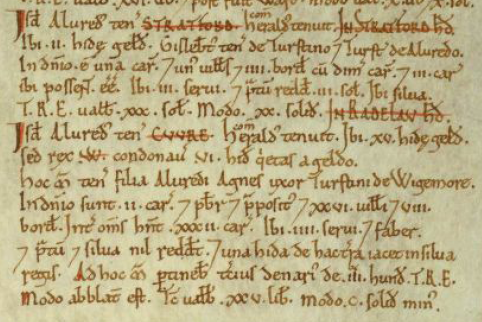 Isđ Alured̉ teñ STRATFORD. Herald com̄ tenuit. IN STRATFORD HĐ.
Ibi .ii. hidę gelđ. Gislebt̉ teñ de Turstano 7 Turst̉ de Aluredo.
In dñio .ē una car̃. 7 un̉ uilłs 7 iiii. borđ cū dim̃ car̃. 7 iii. car̃
ibi posseñt ee. Ibi .iii. serui. 7 p̃tū redđ .iii. sol. Ibi silua.
T.R.E. ualb̃ .xxx. sol. Modo .xx. soliđ. IN RADELAU HĐ.
Isđ Alured̉ teñ CUURE. Herald com̄ tenuit. Ibi .xv. hidę gelđ.
sed rex .W. condonauit .vi. hid̃ q̉etas a geldo.
Hoc m̃ teñ filia Aluredi Agnes uxor Turstini de Wigemore.
In dñio sunt .ii. car̃. 7 p̃br̃ 7 p̃posit̉ 7 xxvi. uilłi 7 viii.
borđ. Int̃ om̃s hñt .xxxii. car̃. Ibi .iiii. serui 7 faber.
7 p̃tū 7 silua nil reddit. 7 una hida de hac tr̃a iacet in silua
regis. Ad hoc m̃ p̃tineb̃ t̃cius denari̛ de .iii. hund̃. T.R.E.
Modo ablat̉ est. T̃c ualb̃ .xxv. lib̃. modo .c. soliđ min̉.